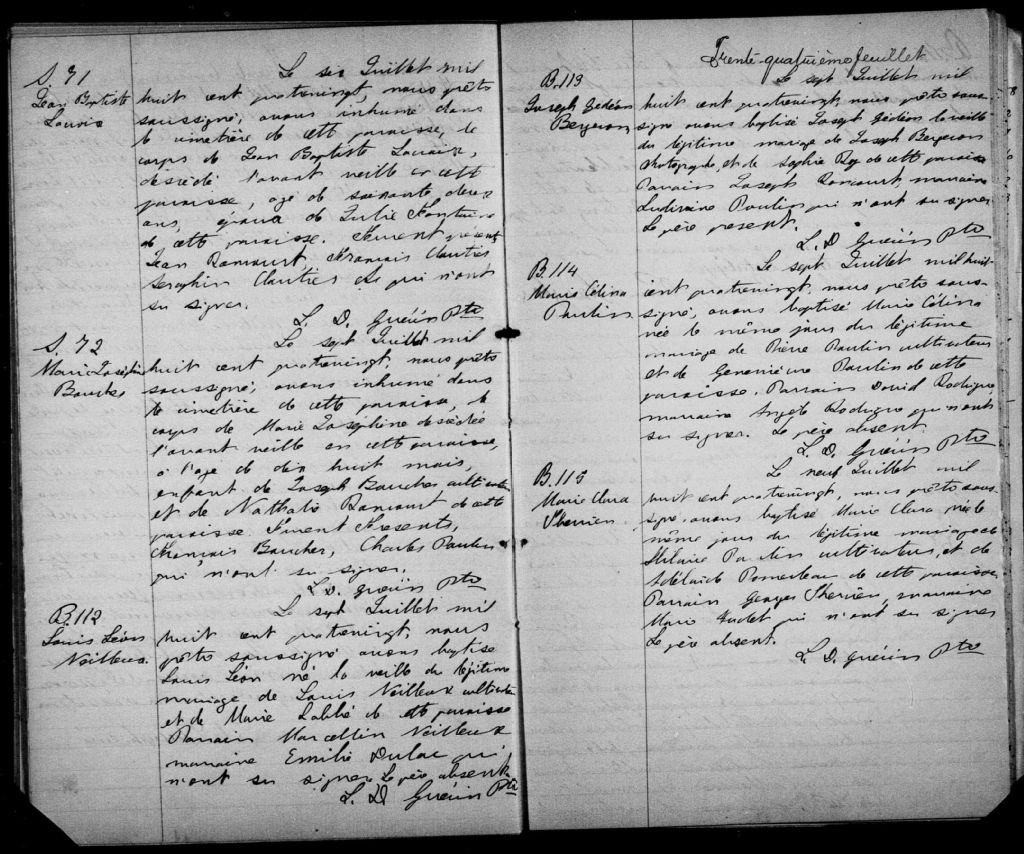 S. 71
Jean Baptiste
Le six Juillet mil
huit cent quatrevingt, nous prêtre
soussigné, avons inhumé dans
le cimetière de cette paroisse, le
corps de Jean Baptiste
décédé l'avant veille en cette
paroisse, agé de soixante deux
ans, époux de Julie Fontaine
de cette paroisse. Furent présents
Jean Rancourt, François
qui n'ont
su signer.
L. D. Guérin Ptre
S. 72
Marie Josephine
Le sept Juillet mil
huit cent quatrevingt, nous prêtre
soussigné, avons inhumé dans
le cimetière de cette paroisse, le
corps de Marie Josephine décédée
l'avant veille en cette paroisse,
à l'age de dix huit mois,
enfant de Joseph Boucher cultivateur
et de Nathalie Rancourt de cette
paroisse. Furent Presents,
François Boucher, Charles Poulin
qui n'ont su signer.
L. D. Guérin Ptre
B. 112
Louis Léon
Veilleux.
Le sept Juillet mil
huit cent quatrevingt, nous
prêtre soussigné avons baptisé
Louis Léon né la veille du légitime
mariage de Louis Veilleux cultivateur
et de Marie Labbé de cette paroisse
Parrain Marcellin Veilleux
marraine Emilie Dulac qui
n'ont su signer. Le père absent.
L. D. Guérin Ptre
Trente-quatrième feuillet
B. 113
Joseph Gédéon
Bergeron
Le sept Juillet mil
huit cent quatrevingt, nous prêtre sous-
signé avons baptisé Joseph Gédéon né la veille
du légitime mariage de Joseph Bergeron
photographe, et de Sophie Roy de cette paroisse
Parrain Joseph Rancourt, marraine
Poulin qui n'ont su signer
Le père présent.
L. D Guérin Ptre
B. 114
Marie Célina
Poulin
Le sept Juillet mil huit
cent quatrevingt, nous prêtre sous-
signé, avons baptisé Marie Célina
née le même jour du légitime
mariage de Pierre Poulin cultivateur
et de Geneviève Poulin de cette
paroisse. Parrain David Rodrigue
marraine Angèle Rodrigue qui n'ont
su signer. Le père absent.
L. D. Guérin Ptre
B. 115
Marie Clara
Le neuf Juillet mil
huit cent quatrevingt, nous prêtre sous-
signé, avons baptisé Marie Clara née le
même jour du légitime mariage de
Hilaire Poulin cultivateur, et de
Adélaide Pomerleau de cette paroisse
Parrain Georges Therrien, marraine
Marie qui n'ont su signer
Le père absent.
L. D. Guérin Ptre